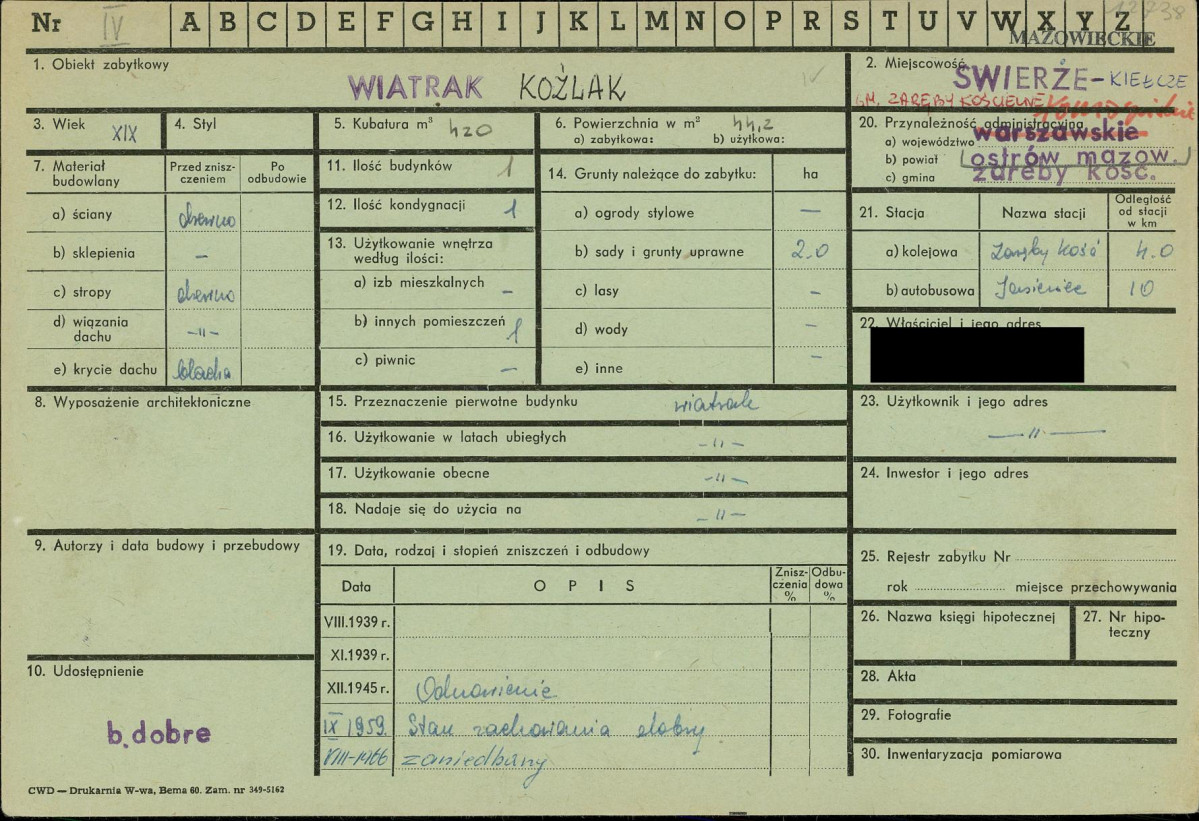 Nr IV A B C D E F G H I J K L M N O P R S T U V W X Y Z 12738
MAZOWIECKIE
1. Obiekt zabytkowy
WIATRAK KOŹLAK
2. Miejscowość
ŚWIERŻE-KIEŁCZE
GM. ZARĘBY KOŚCIELNE
3. Wiek XIX
4. Styl
5. Kubatura m³ 420
6. Powierzchnia w m² 44,2
a) zabytkowa: b) użytkowa:
20. Przynależność administracyjna
a) województwo warszawskie
b) powiat ostrów mazow.
c) gmina zaręby kość.
7. Materiał budowlany
Przed zniszczeniem
Po odbudowie
a) ściany drewno
b) sklepienia –
c) stropy drewno
d) wiązania dachu –"–
e) krycie dachu blacha
11. Ilość budynków 1
12. Ilość kondygnacji 1
13. Użytkowanie wnętrza
według ilości:
a) izb mieszkalnych –
b) innych pomieszczeń 1
c) piwnic –
14. Grunty należące do zabytku: ha
a) ogrody stylowe –
b) sady i grunty uprawne 2.0
c) lasy –
d) wody –
e) inne –
21. Stacja
Nazwa stacji
Odległość
od stacji
w km
a) kolejowa Zaręby Kość 4.0
b) autobusowa Jasienice 10
22. Właściciel i jego adres
8. Wyposażenie architektoniczne
15. Przeznaczenie pierwotne budynku wiatrak
16. Użytkowanie w latach ubiegłych –"–
17. Użytkowanie obecne –"–
18. Nadaje się do użycia na –"–
23. Użytkownik i jego adres
–"–
24. Inwestor i jego adres
9. Autorzy i data budowy i przebudowy
19. Data, rodzaj i stopień zniszczeń i odbudowy
Data
O P I S
Znisz-
czenia
%
Odbu-
dowa
%
VIII.1939 r.
XI.1939 r.
XII.1945 r. Odnowienie
IX 1959. Stan zachowania dobry
VIII-1966 zaniedbany
25. Rejestr zabytku Nr
rok miejsce przechowywania
26. Nazwa księgi hipotecznej
27. Nr hipo-
teczny
10. Udostępnienie
b. dobre
28. Akta
29. Fotografie
30. Inwentaryzacja pomiarowa
CWD — Drukarnia W-wa, Bema 60. Zam. nr 349-5162